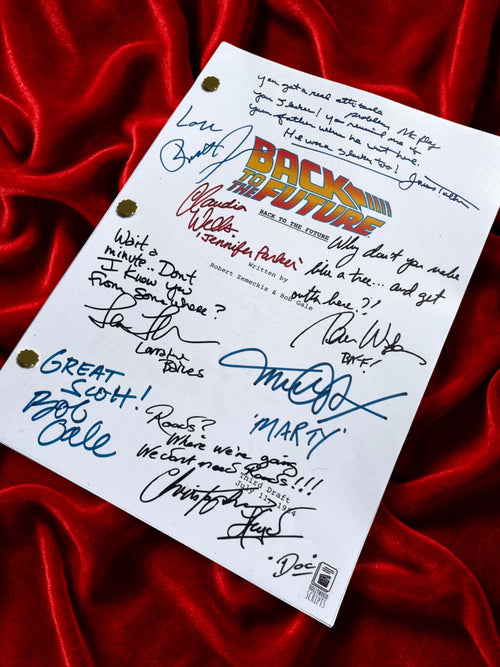 You got a real attitude
problem McFly
you slacker! You remind me of
your father when he went here.
He was a slacker too!
James Tolkan
Love
BACK
TO THE
FUTURE
BACK TO THE FUTURE
Claudia
Wells
'Jennifer Parker'
Written by
Robert Zemeckis & Bob Gale
Why don't you make
like a tree... and get
outta here?!!
BIFF!
Wait a
minute.. Dont
I Know you
From Somewhere?
Lorraine
Baines
GREAT
SCOTT!
BOB
Gale
'MARTY'
Roads?
Where we're going
We don't need Roads!!!
Third Draft
July 11, 1984
Christopher
Lloyd
"Doc"
HOLLYWOOD
SCRIPTS